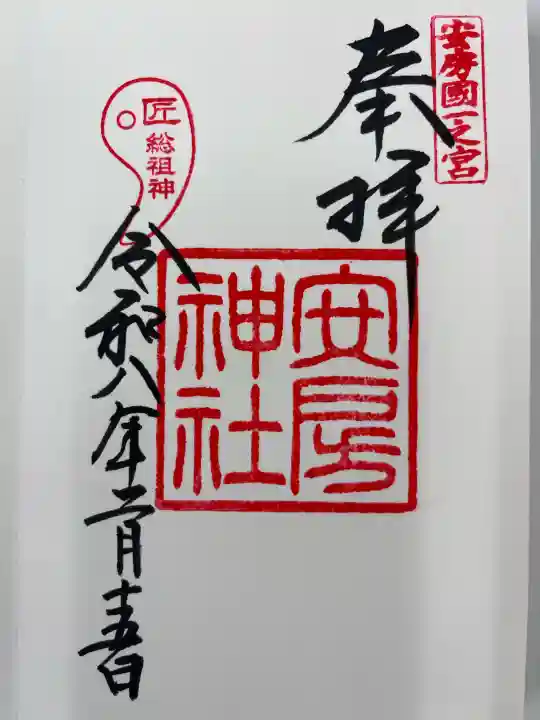 安房國一之宮
奉拝
安房
神社
匠
総祖神
令和八年二月十五日